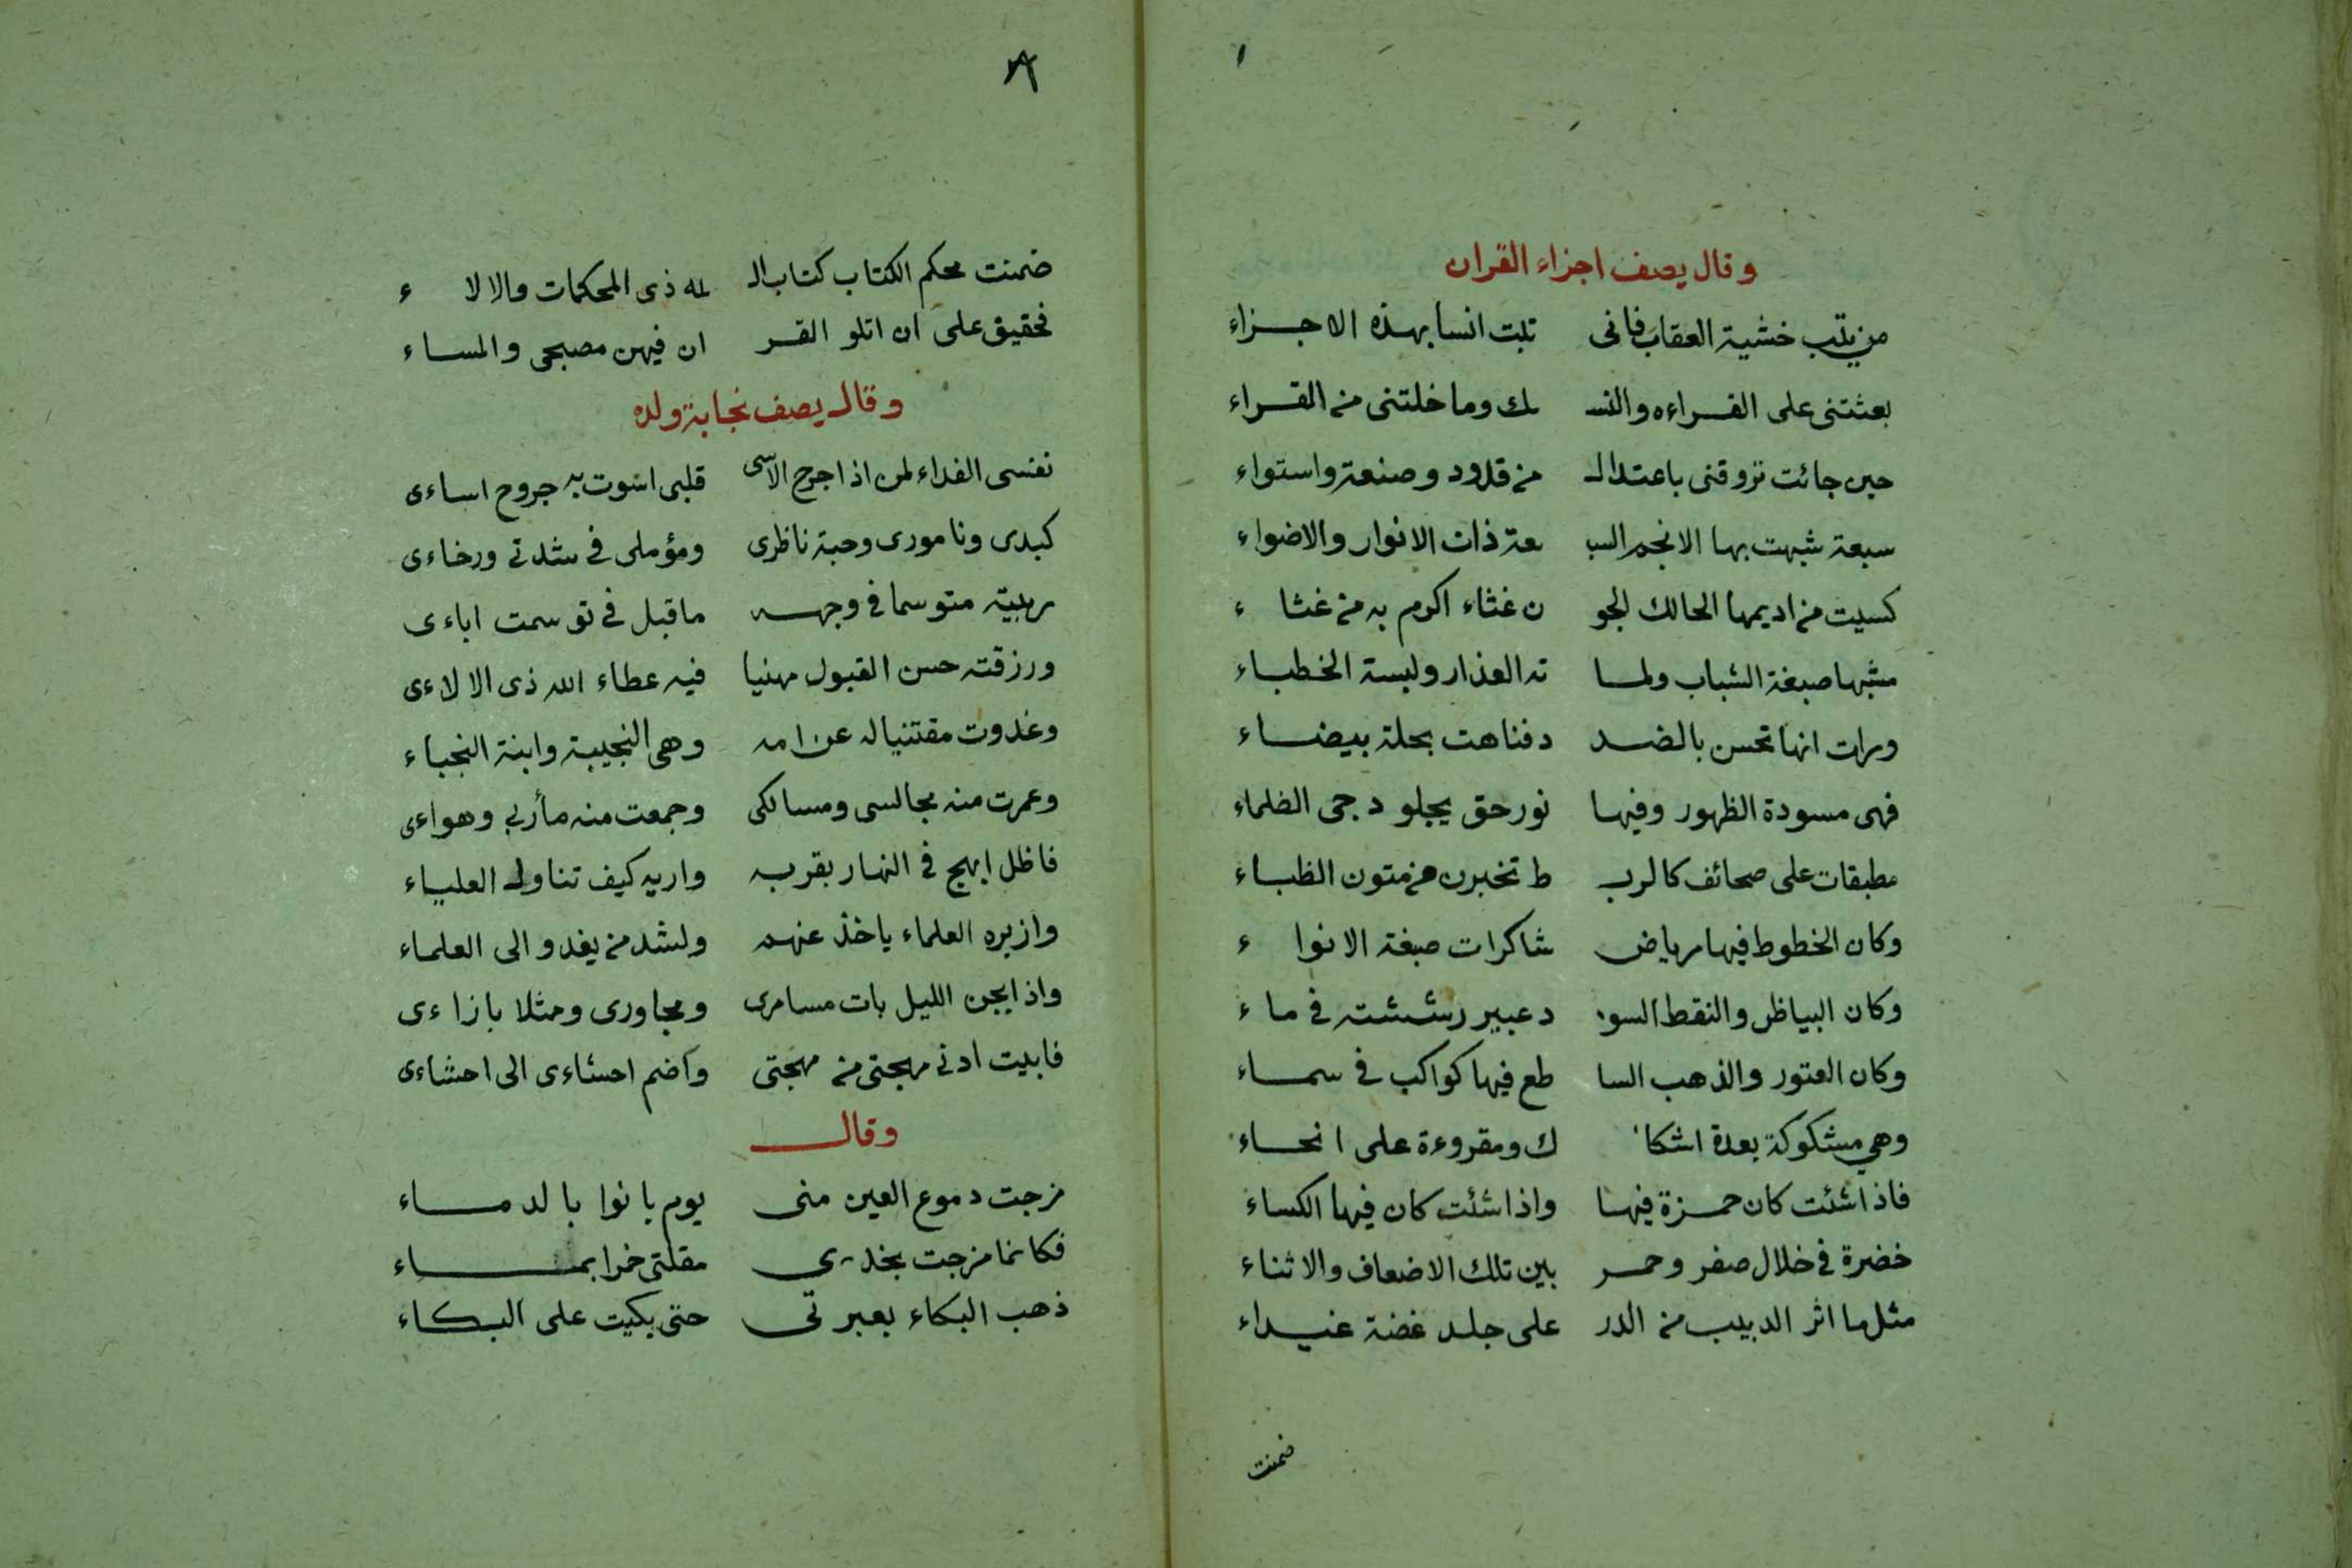 وقال يصف اجزاء القران
من يتب خشية العقاب فانى تبت انسا بهذه الاجزاء
بعثتنى على القراءه والنسـ ـك وما خلتنى من القراء
حين جائت تروقنى باعتدال من قدود وصنعة واستواء
سبعة شبهت بها الانجم السبـ ـعة ذات الانوار والاضواء
كسيت من اديمها الحالك الجو ن غثاء اكرم به من غثاء
مشبها صبغة الشباب ولمـا ته العذار ولبسة الخطباء
ورات انها تحسن بالضـد د فتاهت بحلة بيضاء
فهى مسودة الظهور وفيها نور حق يجلو دجى الظلماء
مطبقات على صحائف كالريـ ط تخبرن من متون الظباء
وكان الخطوط فيها رياض شاكرات صبغة الانواء
وكان البياظ والنقط السو د عبير رششته فى ماء
وكان العتور والذهب السا طع فيها كواكب فى سماء
وهى مشكوكة بعدة اشكا ل ومقروءة على انحاء
فاذا شئت كان حمزة فيها واذا شئت كان فيها الكساء
خضرة فى خلال صفر وحمـر بين تلك الاضعاف والاثناء
مثل ما اثر الدبيب من الذر على جلد غضة غيداء
ضمنت
٨
ضمنت محكم الكتاب كتاب الـ ـله ذى المحكمات والالاء
فحقيق على ان اتلو القـر ان فيهن مصبحى والمساء
وقال يصف نجابة ولده
نفسى الفداء لمن اذا جرح الآسى قلبى اسوت به جروح اساءى
كبدى وتامورى وحبة ناظرى ومؤملى فى شدتى ورخاءى
ربيته متوسما فى وجهه ما قبل فى توسمت اباءى
ورزقته حسن القبول مهنيا فيه عطاء الله ذى الالاءى
وغدوت مقتنيا له عن امه وهى النجيبة وابنة النجباء
وعمرت منه مجالسى ومسالكى وجمعت منه مأربى وهواءى
فاظل ابهج فى النهار بقربه واريه كيف تناول العلياء
وازيره العلماء ياخذ عنهم ولشد من يغدو الى العلماء
واذا يجن الليل بات مسامرى ومجاورى ومثلا بازاءى
فابيت ادنى مهجتى من مهجتى واضم احشاءى الى احشاءى
وقال
مزجت دموع العين منى يوم بانوا بالدماء
فكانما مزجت بخدى مقلتى خمرا بماء
ذهب البكاء بعبرتى حتى بكيت على البكاء